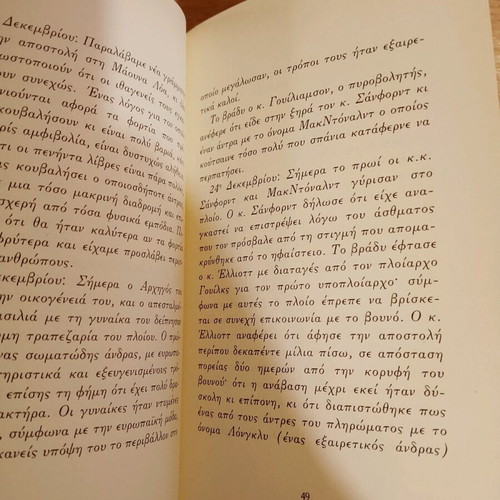 Δεκεμβρίου: Παραλάβαμε νέα
ην αποστολή στη Μάουνα Λόα, κι
ωστοποιούν ότι οι ιθαγενείς τους
ουν συνεχώς. Ένας λόγος για τον
νιούνται αφορά τα φορτία που
κουβαλήσουν κι είναι πολύ βαριά,
ρίς αμφιβολία, είναι δυστυχώς αληθές
τι οι πενήντα λίβρες είναι πάρα πολλές
κουβαλήσει ο οποιοσδήποτε άντρας
ε μια τόσο μακρινή διαδρομή και
σχερή από τόσα φυσικά εμπόδια. Π
ότι θα ήταν καλύτερα αν τα φορτία
φρύτερα και είχαμε προσλάβει περισ
ανθρώπους.
εκεμβρίου: Σήμερα ο Αρχηγός
ην οικογένειά του, και ο απεσταλμ
ασιλιά με τη γυναίκα του δείπνησαν
μη τραπεζαρία του πλοίου. Ο
νας σωματώδης άνδρας, με ευρωπα
τηριστικά και εξευγενισμένους τρό
επίσης τη φήμη ότι έχει πολύ
ακτήρα. Οι γυναίκες ήταν ντυμένες
, σύμφωνα με την ευρωπαϊκή μόδα,
κανείς υπόψη του το περιβάλλον στο
οποίο μεγάλωσαν, οι τρόποι τους ήταν εξαιρε-
τικά καλοί.
Το βράδυ ο κ. Γουίλιαμσον, ο πυροβολητής,
ανέφερε ότι είδε στην ξηρά τον κ. Σάνφορντ κι
έναν άντρα με το όνομα ΜακΝτόναλντ ο οποίος
κούτσαινε τόσο πολύ που σπάνια κατάφερνε να
περπατήσει.
24η Δεκεμβρίου: Σήμερα το πρωί οι κ.κ.
Σάνφορντ και ΜακΝτόναλντ γύρισαν στο
πλοίο. Ο κ. Σάνφορντ δήλωσε ότι είχε ανα-
γκαστεί να επιστρέψει λόγω του άσθματος
που τον πρόσβαλε από τη στιγμή που απομα-
κρύνθηκε από το ηφαίστειο. Το βράδυ έφτασε
ο κ. Έλλιοττ με διαταγές από τον πλοίαρχο
Γουίλκς για τον πρώτο υποπλοίαρχο· σύμ-
φωνα με αυτές το πλοίο έπρεπε να βρίσκε-
ται σε συνεχή επικοινωνία με το βουνό. Ο κ.
Έλλιοττ αναφέρει ότι άφησε την αποστολή
περίπου δεκαπέντε μίλια πίσω, σε απόσταση
πορείας δύο ημερών από την κορυφή του
βουνού· ότι η ανάβαση μέχρι εκεί ήταν δύ-
σκολη κι επίπονη, κι ότι διαπιστώθηκε πως
ένας από τους άντρες του πληρώματος με το
όνομα Λόνγκλυ (ένας εξαιρετικός άνδρας)
49